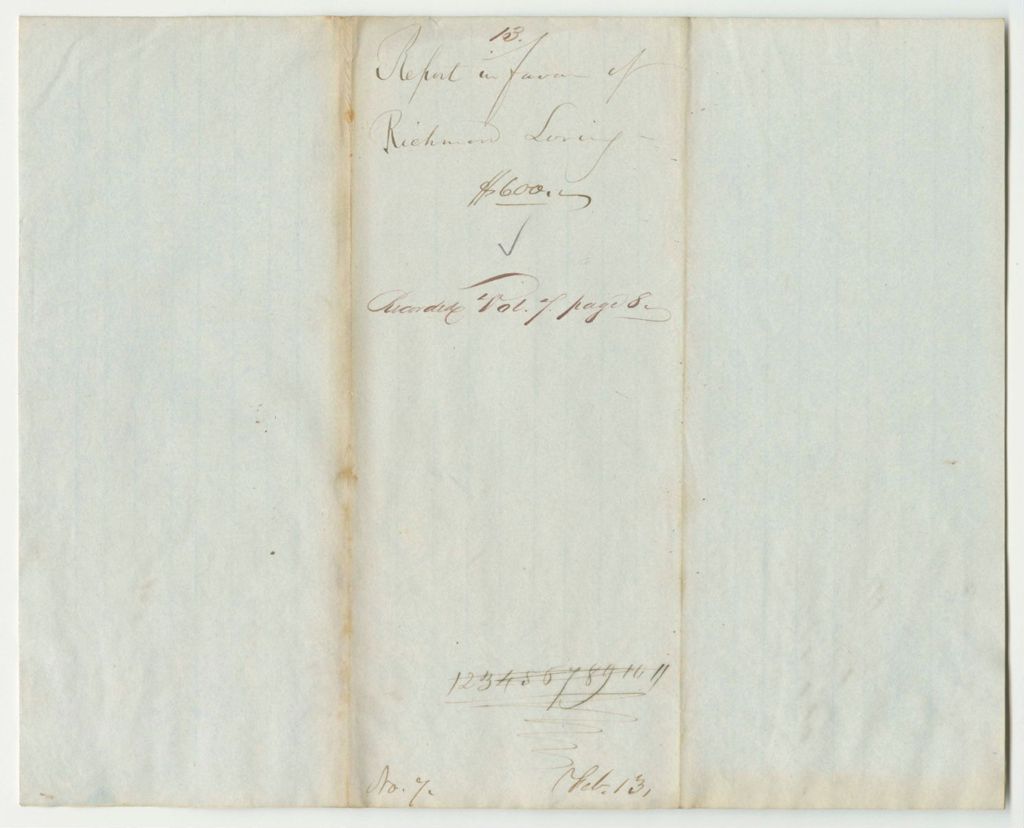 13.
Report in favor of
Richmond Loring
$600
Recorded Vol. 7. page 8.
1 2 3 4 5 6 7 8 9 10 11
No. 7. Feb. 13,